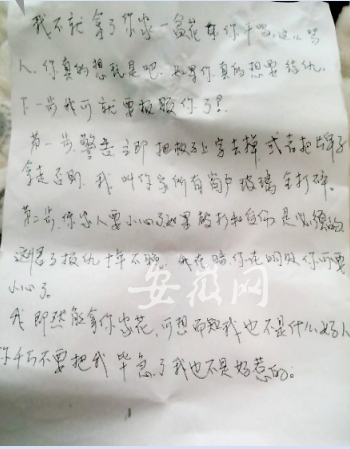 我不就拿了你家一盆花其你干吗这么骂
人.你真的想找是吧.如果你真的想要结仇.
下一步我可就要报服你了!
第一步.警告立即把板子上字去掉或者把牌子
拿走否则.我叫你家所有窗户玻璃全打碎.
第二步.你家人要小心了如果被打和自伤是必须的
这得了报仇十年不晚.我在暗你在明的你可要
小心了
我即然能拿你家花.可想而知我也不是什么好人
你千万不要把我毕急了我也不是好惹的。
安徽网